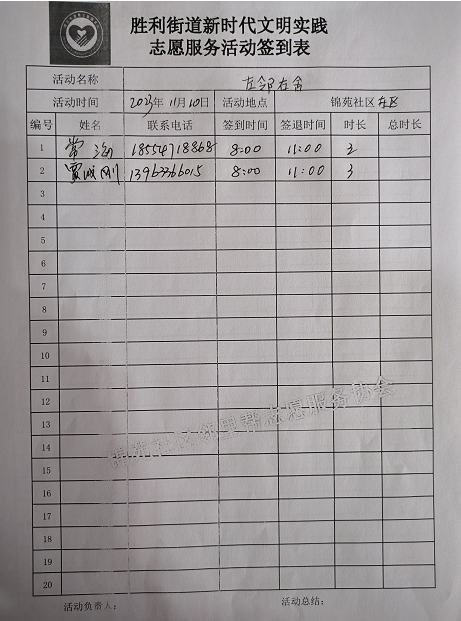 胜利街道新时代文明实践
志愿服务活动签到表
活动名称 左邻右舍
活动时间 2023年 11月 10日 活动地点 锦苑社区 东区
编号 姓名 联系电话 签到时间 签退时间 时长 总时长
1 常海 18554718868 8:00 11:00 3
2 贾成刚 13963366015 8:00 11:00 3
3
4
5
6
7
8
9
10
11
12
13
14
15
16
17
18
19
20
邻里帮志愿服务协会
活动负责人: 活动总结: